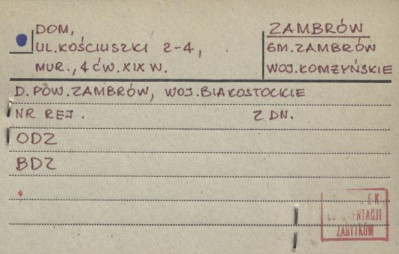 DOM,
UL. KOŚCIUSZKI 2-4,
MUR., 4 ĆW. XIX W.
ZAMBRÓW
GM. ZAMBRÓW
WOJ. ŁOMŻYŃSKIE
D. POW. ZAMBRÓW, WOJ. BIAŁOSTOCKIE
NR REJ. Z DN.
ODZ
BDZ
ZABYTKÓW